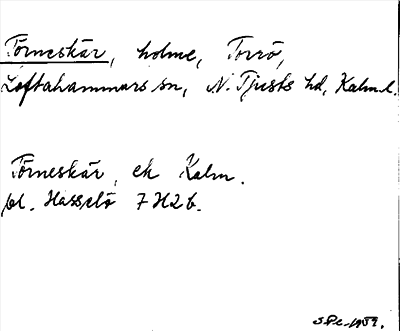 Törneskär, holme, Torrö,
Loftahammars sn, N. Tjusts hd, Kalm. l.
Törneskär, ek Kalm.
bl. Hasselö 7H2b.
1959.